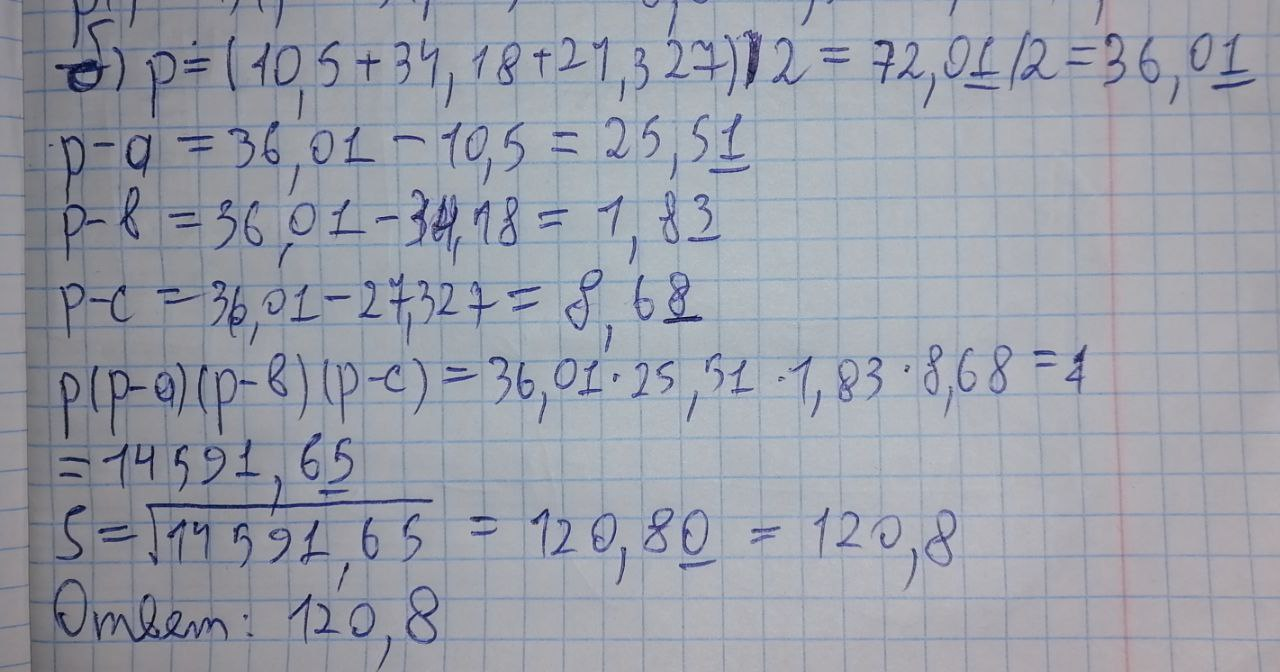 б) p = (10,5+34,18+27,327)/2 = 72,01/2=36,01
p-a = 36,01 - 10,5 = 25,51
p-в = 36,01-34,18 = 1,83
p-c = 36,01-27,327 = 8,68
p(p-a)(p-в)(p-c) = 36,01·25,51·1,83·8,68 = 1
= 14591,65
S = √14591,65 = 120,80 = 120,8
Ответ: 120,8